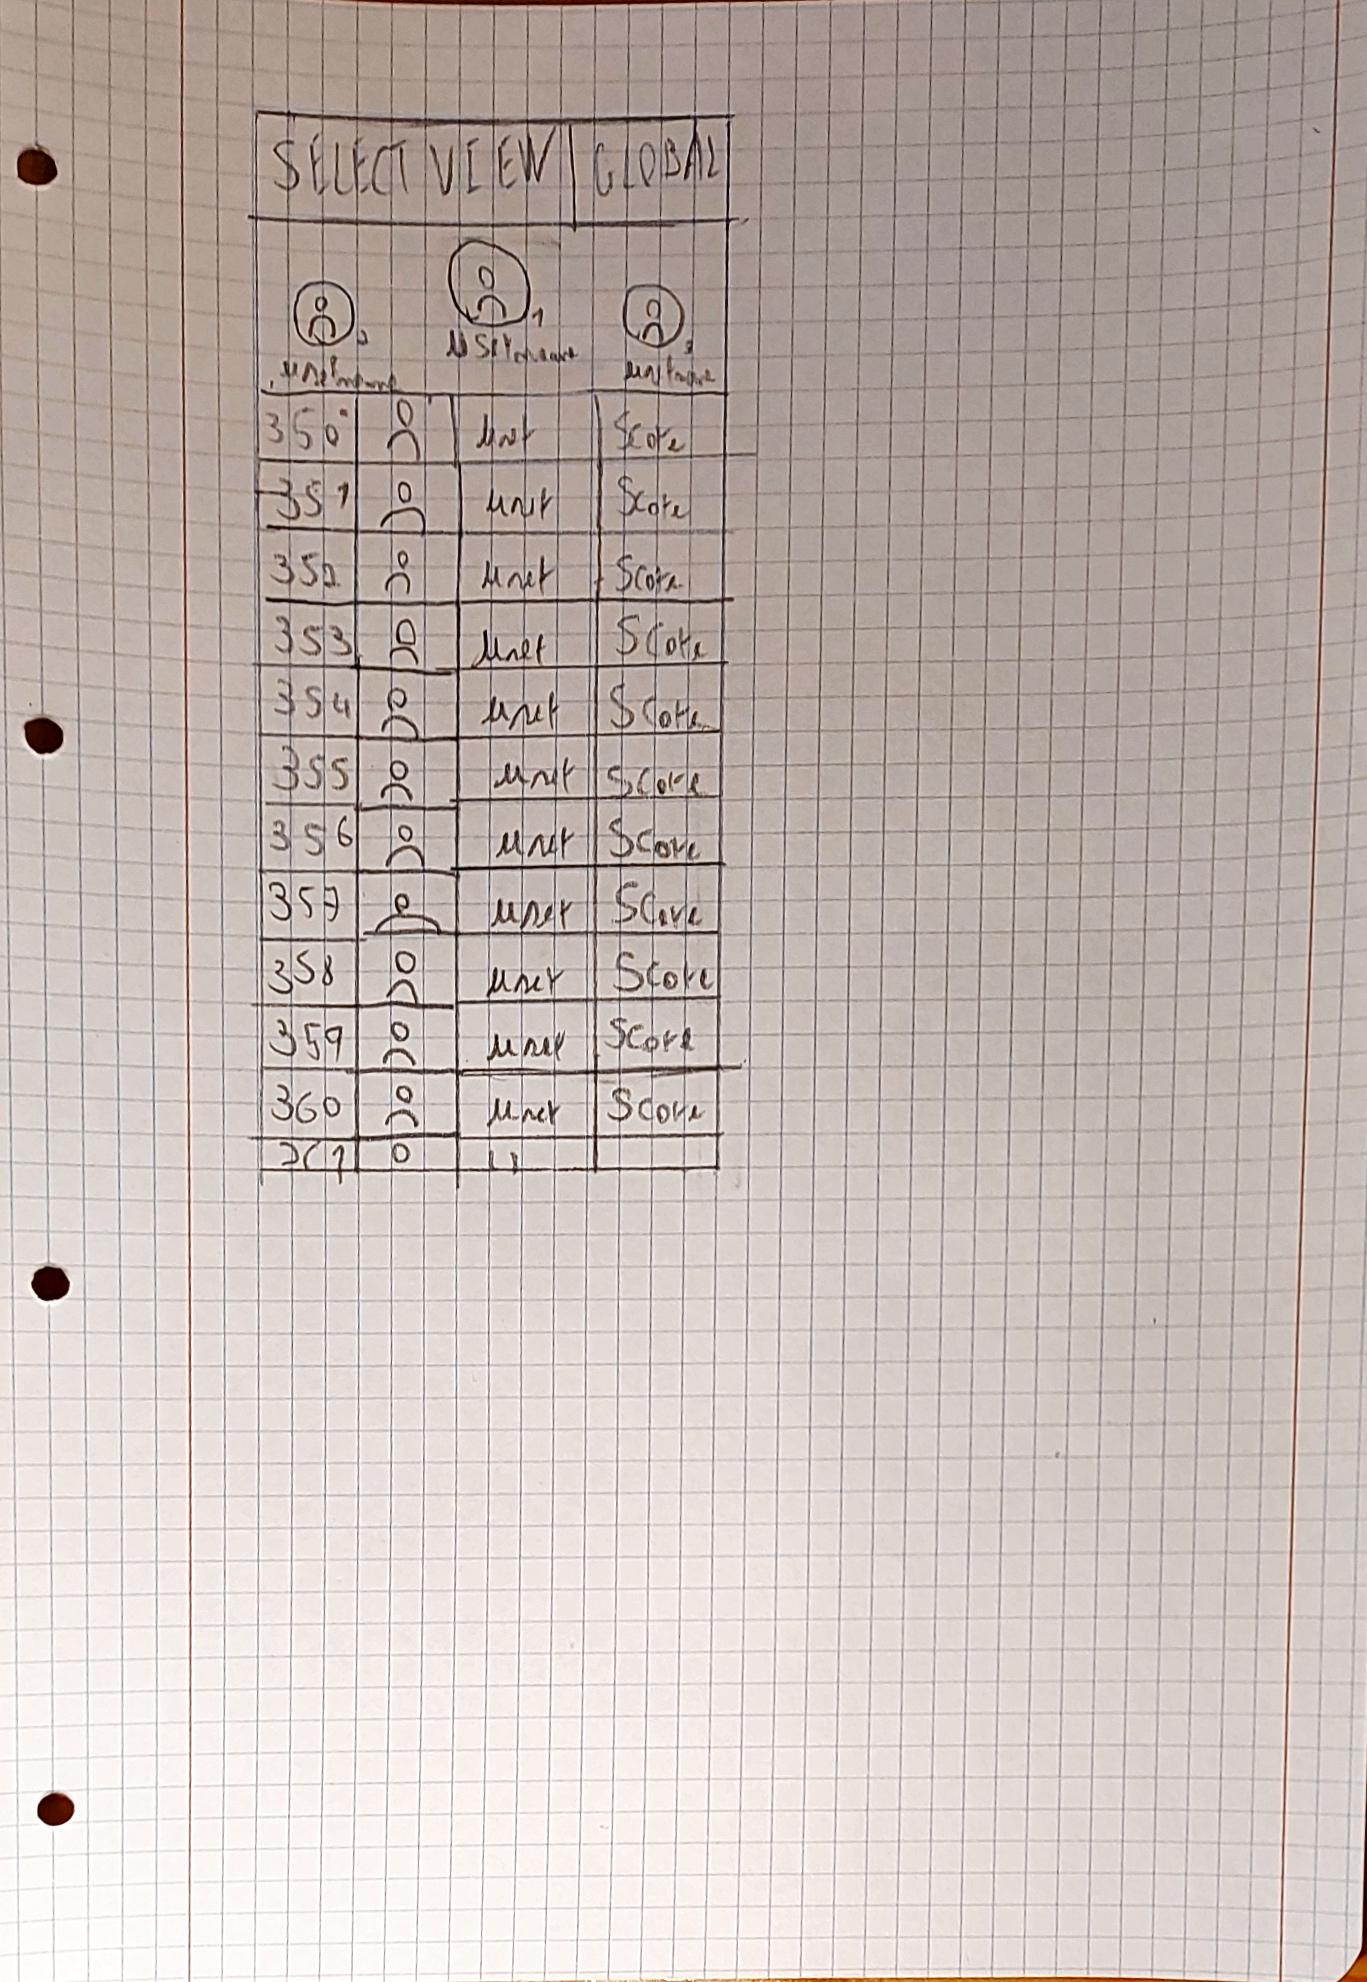 SELECT VIEW GLOBAL
1
2 3
username
username username
350 user Score
351 user Score
352 user Score
353 user Score
354 user Score
355 user Score
356 user Score
357 user Score
358 user Score
359 user Score
360 user Score
361